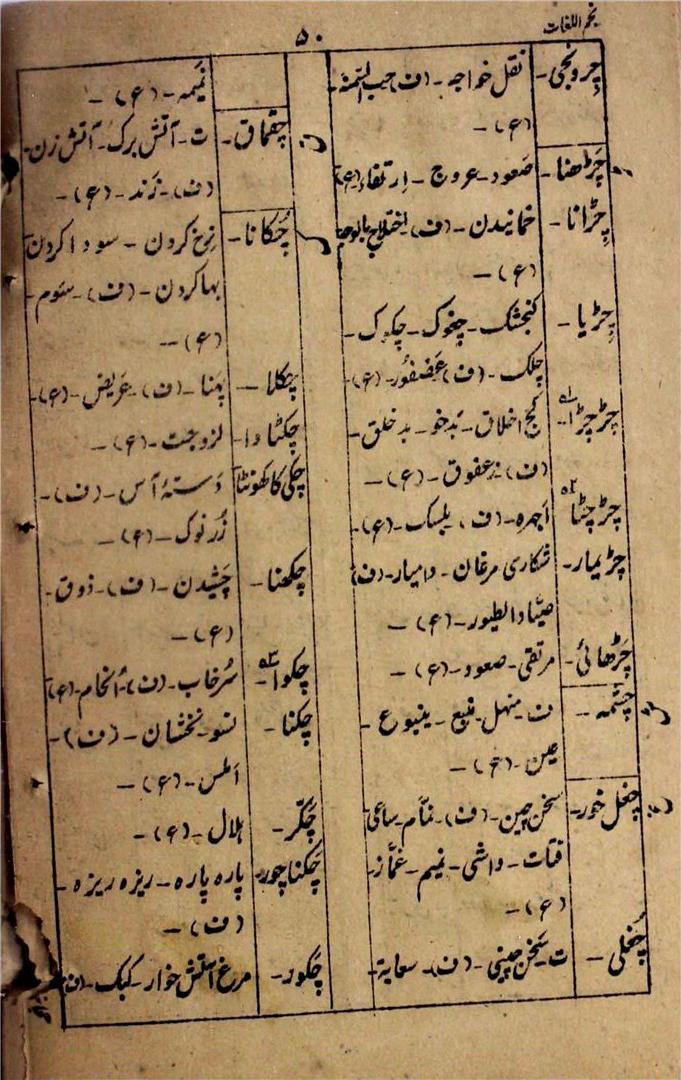 نجم اللغات
۵۰
چرونجی - نقل خواجہ - (ف) حب السمنہ -
(ع) -
چڑھنا - صعود - عروج - ارتقاء (ع)
چڑانا - خمانیدن - (ف) اختلاج بالوجہ
(ع) -
چڑیا - کنجشک - چغوک - چکوک -
چلک - (ف) عصفور - (ع) -
چڑچڑا - کج اخلاق - بدخو - بدخلق -
(ف) زعفوق - (ع) -
چڑچٹا ۵۲ (ف) (ع) -
چڑیمار - شکاری مرغان - دامیار - (ف)
صیّاد الطیور - (ع) -
چڑھائی - مرتقی - صعود - (ع) -
چشمہ - ف - منہل - نبع - ینبوع -
عین - (ع) -
چغل خور - سخن چین - (ف) - نمّام - ساعی
قتات - واشی - نمیم - غمّاز -
(ع) -
چُغلی - ت - سخن چینی - (ف) - سعایۃ -
نمیمہ - (ع) -
چقماق - ت - آتش برگ - آتش زن -
(ف) - زند - (ع) -
چُکانا - نرخ کردن - سودا کردن
بہا کردن - (ف) - سوم -
(ع) -
چکلا - پہنا - (ف) - عریض - (ع) -
چکٹاوا - لزوجت - (ع) -
چکی کا کھونٹا دستۂ آس - (ف) -
زرنوک - (ع) -
چکھنا - چشیدن - (ف) - ذوق -
(ع) -
چکوا ۵۳ - سرخاب - (ف) - اُنحام - (ع)
چکنا - نسو - نخشان - (ف) -
املس - (ع) -
چکّر - ہلال - (ع) -
چکنا چور - پارہ پارہ - ریزہ ریزہ -
(ف) -
چکور - مرغ آتش خوار - کبک - (ف)